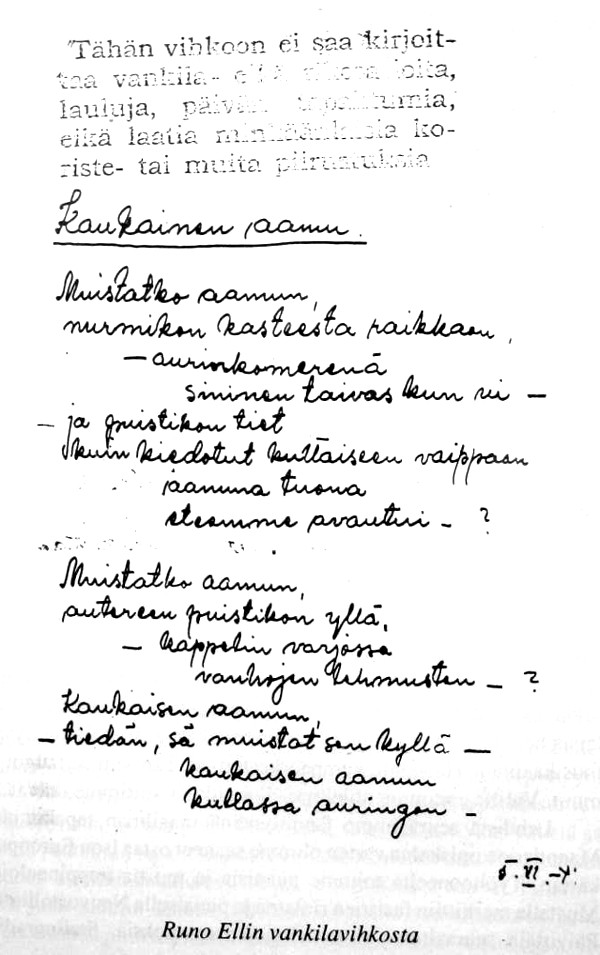 "Tähän vihkoon ei saa kirjoit-
taa vankila-
lauluja, päivän tapahtumia,
eikä laatia minkäänlaisia ko-
riste- tai muita piirustuksia
Kaukainen aamu.
Muistatko aamun,
nurmikon kasteesta raikkaan,
— aurinkomerenä
sininen taivas kun ui —
— ja puistikon tiet
kuin kiedotut kultaiseen vaippaan
aamuna tuona
eteemme avautui — ?
Muistatko aamun,
autereen puistikon yllä,
— kappelin varjossa
vanhojen lehmusten — ?
Kaukaisen aamun,
— tiedän, sä muistat sen kyllä —
kaukaisen aamun
kullassa auringon —
Runo Ellin vankilavihkosta